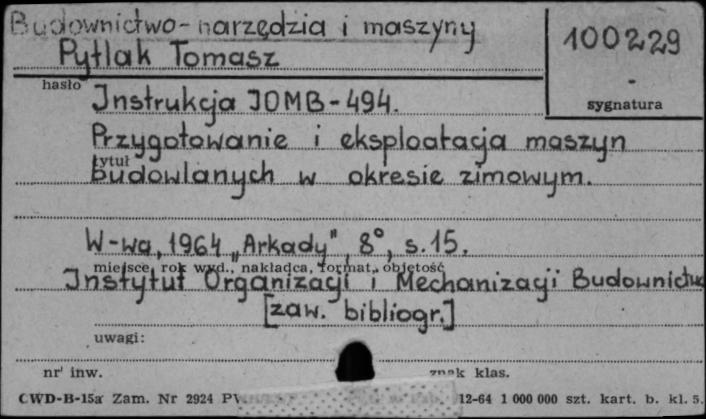 Budownictwo - narzędzia i maszyny
100229
Pytlak Tomasz
hasło
sygnatura
Instrukcja IOMB-494.
Przygotowanie i eksploatacja maszyn
tytuł
budowlanych w okresie zimowym.
W-wa, 1964 „Arkady", 8°, s. 15.
miejsce, rok wyd., nakładca, format, objętość
Instytut Organizacji i Mechanizacji Budownictwa
[zaw. bibliogr.]
uwagi:
nr inw.
znak klas.
CWD-B-15a Zam. Nr 2924 12-64 1 000 000 szt. kart. b. kl. 5.